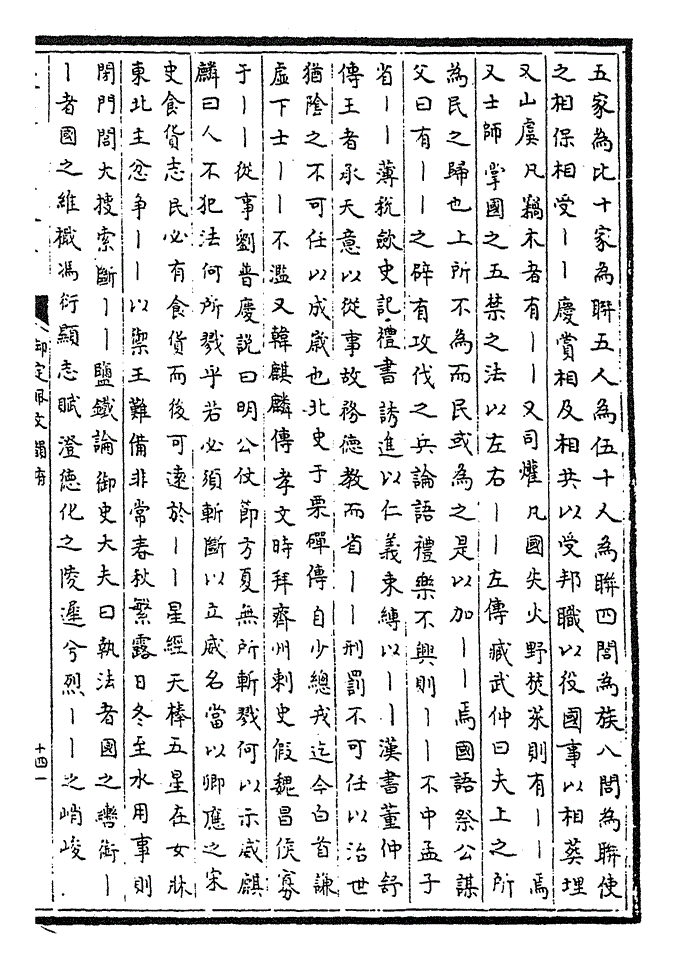 五家為比十家為聯五人為伍十人為聯四閭為族八閭為聯使
之相保相受丨丨慶賞相及相共以受邦職以役國事以相葬埋
又山虞凡竊木者有丨丨又司爟凡國失火野焚萊則有丨丨焉
又士師掌國之五禁之法以左右丨丨左傳臧武仲曰夫上之所
為民之歸也上所不為而民或為之是以加丨丨焉國語祭公謀
父曰有丨丨之辟有攻伐之兵論語禮樂不興則丨丨不中孟子
省丨丨薄稅斂史記禮書誘進以仁義束縛以丨丨漢書董仲舒
傳王者承天意以從事故務德教而省丨丨刑罰不可任以治世
猶陰之不可任以成歲也北史于栗磾傳自少總戎迄今白首謙
虛下士丨丨不濫又韓麒麟傳孝文時拜齊州刺史假魏昌侯寡
于丨丨從事劉普慶說曰明公仗節方夏無所斬戮何以示威麒
麟曰人不犯法何所戮乎若必須斬斷以立威名當以卿應之宋
史食貨志民必有食貨而後可遠於丨丨星經天棒五星在女牀
東北主忿争丨丨以禦王難備非常春秋繁露日冬至水用事則
閉門閭大搜索斷丨丨鹽鐵論御史大夫曰執法者國之轡銜丨
丨者國之維檝馮衍顯志賦澄德化之陵遲兮烈丨丨之峭峻
御定佩文韻府
十四一